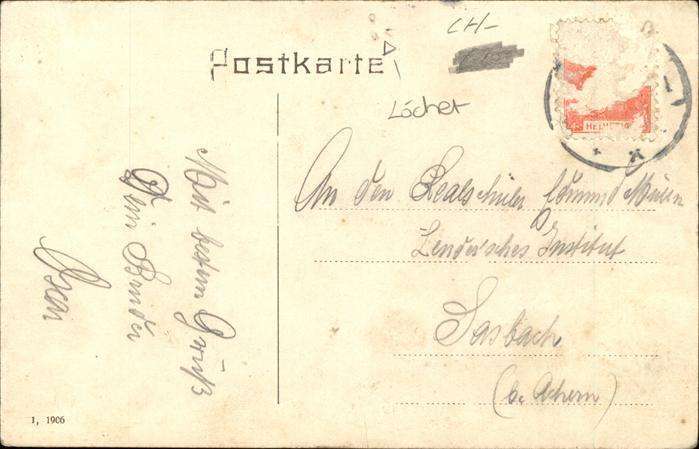 Postkarte
CH-
Löcher
HELVETIA
An den Realschüler
Lender'sches Institut
Sasbach
(b. Achern)
Mit bestem Gruß
Dein Bruder
Oscar
1, 1906